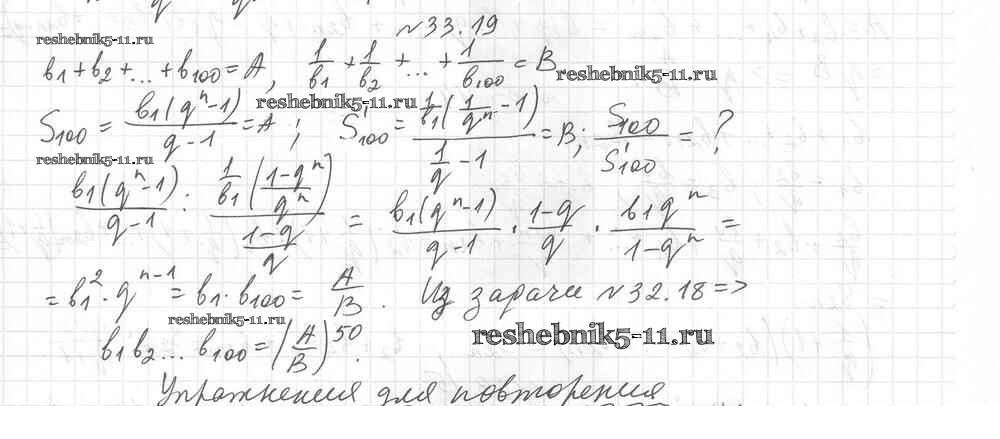 №33.19
reshebnik5-11.ru
b1+b2+...+b100=A, 1/b1+1/b2+...+1/b100=B
reshebnik5-11.ru
reshebnik5-11.ru
S100=b1(q^n-1)/(q-1)=A; S'100=1/b1(1/q^n-1)/(1/q-1)=B; S100/S'100=?
reshebnik5-11.ru
b1(q^n-1)/(q-1) : 1/b1((1-q^n)/q^n)/((1-q)/q) = b1(q^n-1)/(q-1) · (1-q)/q · b1q^n/(1-q^n) =
=b1^2·q^(n-1)=b1·b100=A/B. Из задачи №32.18=>
reshebnik5-11.ru
b1b2...b100=(A/B)^50.
reshebnik5-11.ru
Упражнения для повторения